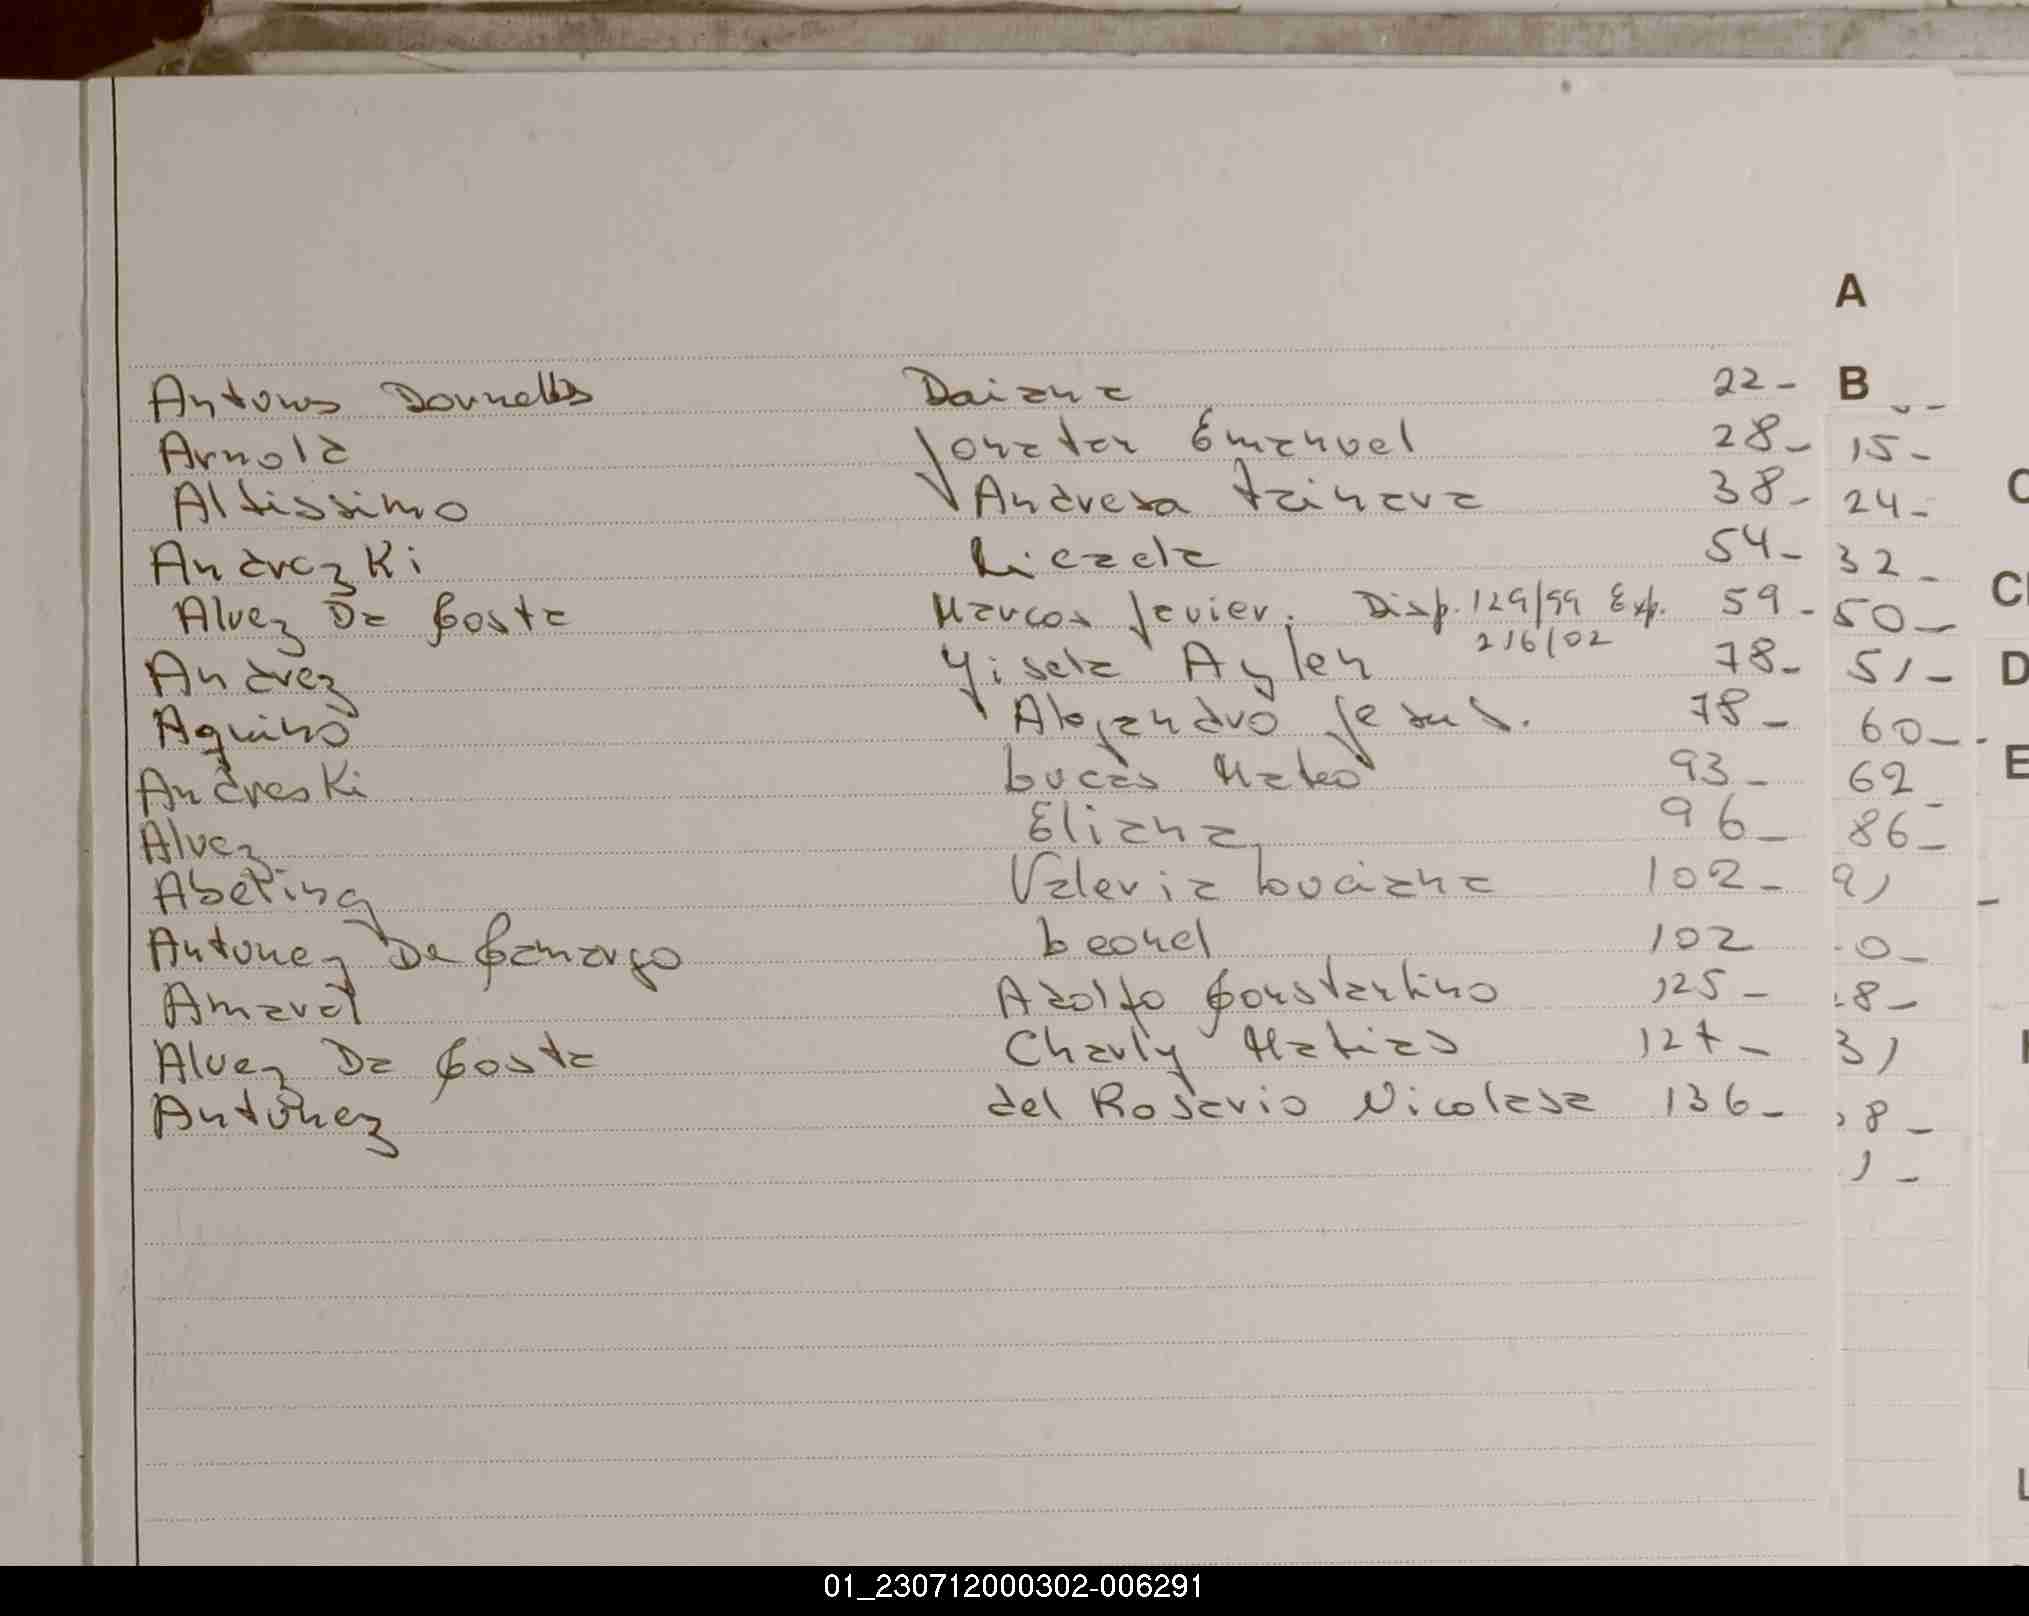 A
Antunes Dornelles Daiana 22-
B
Arnold Jonatan Emanuel 28- 15-
Altissimo Andresa Tainara 38- 24-
C
Andrezki Liezela 54- 32-
Alvez Da Costa Marcos Javier. Disp. 129/99 Exp. 59- 50-
216/02
Andrez Yisela Aylen 78- 51-
D
Aquino Alejandro Jesus. 78- 60-
Andreski Lucas Mateo 93- 62-
E
Alvez Eliana 96- 86-
Abeling Valeria Luciana 102- 91
Antunez Da Camargo Leonel 102 0-
Amaral Adolfo Constantino 125- 8-
Alvez Da Costa Charly Matias 127- 31
Antúnez del Rosario Nicolasa 136- 8-
1-
L
01_230712000302-006291